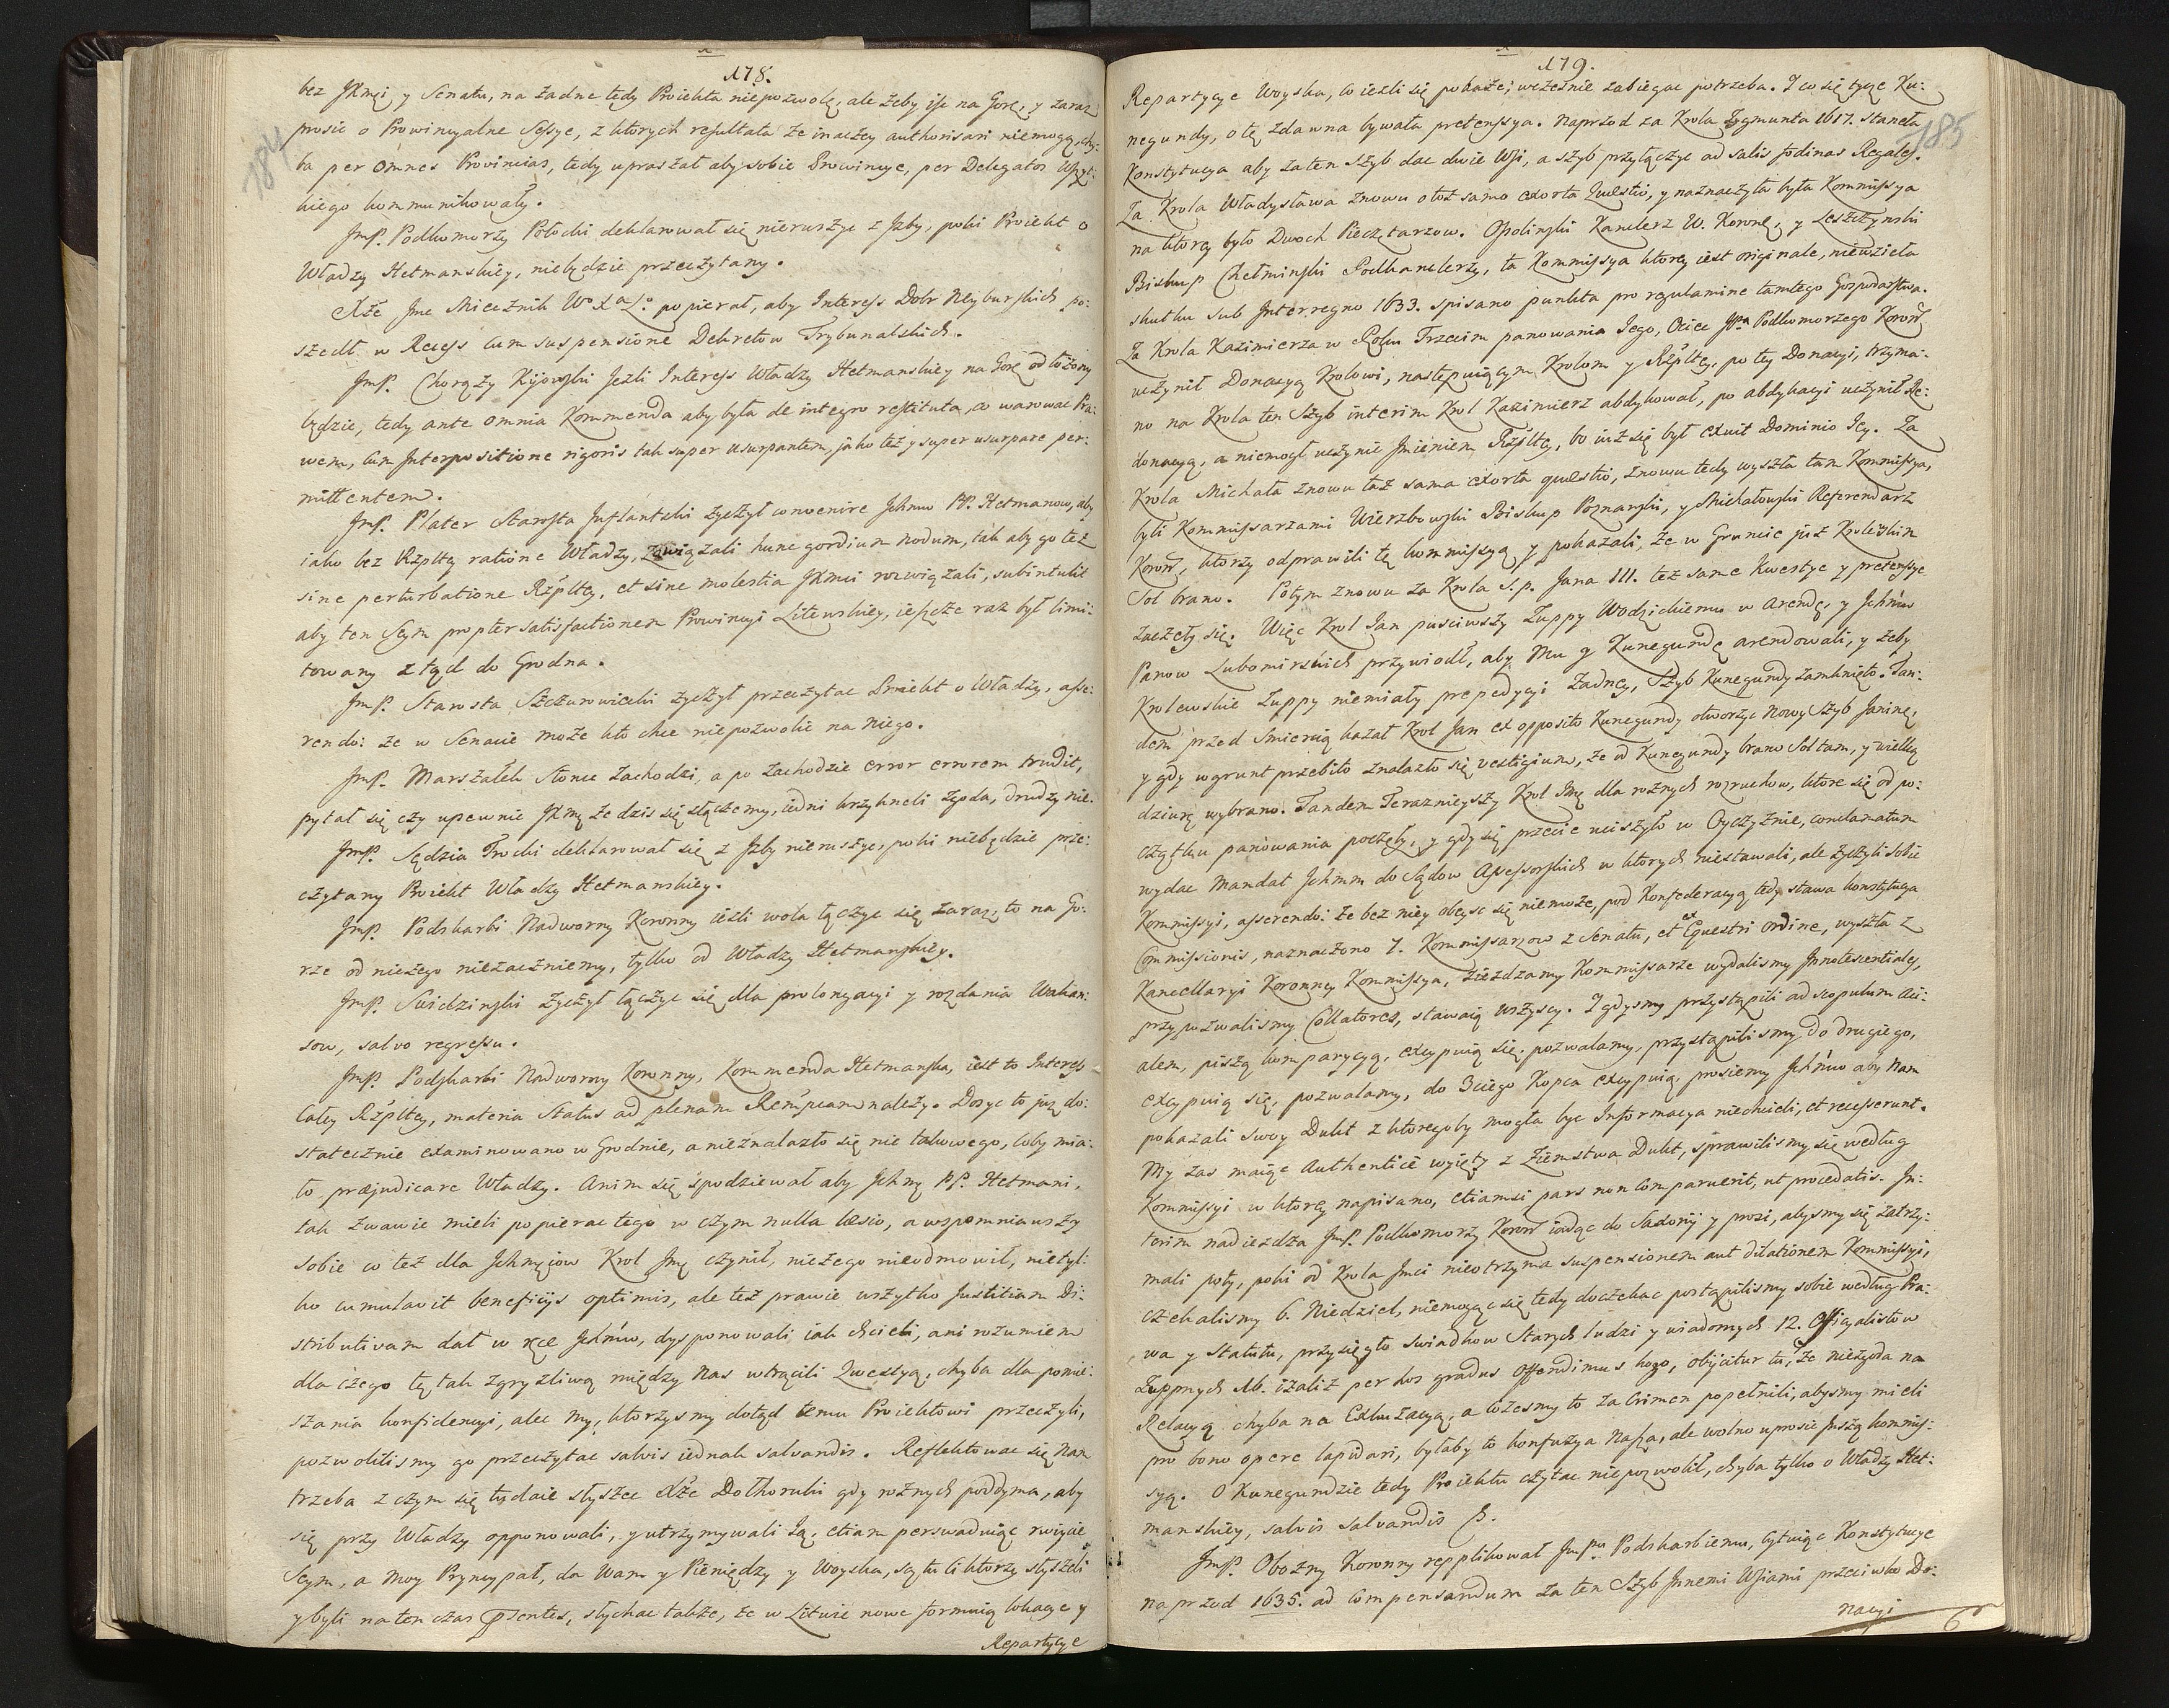 178.
184
bez JKmci y Senatu, na żadne tedy Proiekta niepozwolę, ale żeby iść na Gorę, y zaraz
prosić o Prowincyalne Sessye, z ktorych resultata że inaczey authorisari niemogą, chy-
ba per omnes Provincias, tedy upraszał aby sobie Prowincye, per Delegatos wszyt:
kiego kommunikowały.
JmP. Podkomorzy Połocki deklarował się nieruszyć z Jzby, poki Proiekt o
Władzy Hetmanskiey, niebędzie przeczytany.
Xżę Jmc Miecznik Wo Xa Lo popierał, aby Interess Dobr Neyburskich po:
szedł w Recess cum suspensione Dekretow Trybunalskich.
JmP. Chorąży Kijowski Jeżli Interess Władzy Hetmanskiey na Gorę odłożony
będzie, tedy ante omnia Kommenda aby była de integro restituta, co warować Pra:
wem, cum Interpositione rigoris tak super usurpantem, jako też y super usurpare per:
mittentem.
JmP. Plater Starosta Inflantski życzył convenire Jchmw PP. Hetmanow, aby
iako bez Rzpltey ratione Władzy, zawiązali hunc gordium nodum, tak aby go też
sine perturbatione Rzpltey, et sine molestia JKmci rozwiązali, subintulit
aby ten Seym propter satisfactionem Prowincyi Litewskiey, ieszcze raz był limi:
towany z tąd do Grodna.
JmP. Starosta Szczurowiecki życzył przeczytać Proiekt o Władzy, asse:
rendo: że w Senacie może kto chce niepozwolić na niego.
JmP. Marszałek słońce zachodzi, a po zachodzie error errorem trudit,
pytał się czy upewnić JKmę że dziś się złączemy, iedni krzyknęli zgoda, drudzy nie.
JmP. Sędzia Trocki deklarował się z Jzby nieruszyć, poki niebędzie prze:
czytany Proiekt Władzy Hetmanskiey.
JmP. Podskarbi Nadworny Koronny ieżli wola łączyć się zaraz, to na Go:
rze od niczego niezaczniemy, tylko od Władzy Hetmanskiey.
JmP. Swidzinski życzył łączyć się dla prolongacyi y rozdania Wakan:
sow, salvo regressu.
JmP. Podskarbi Nadworny Koronny, Kommenda Hetmanska, iest to Interess
całey Rzpltey, materia Status ad plenam Rempcam należy. Dosyć to już do:
statecznie examinowano w Grodnie, a nieznalazło się nic takowego, coby mia:
ło præjudicare Władzy. Anim się spodziewał aby Jchmę PP. Hetmani,
tak żwawie mieli popierać tego w czym nulla læsio, a wspomniawszy
sobie co też dla Jchmęciow Krol Jmę czynił, niczego nieodmowił, nietyl:
ko cumulavit beneficijs optimis, ale też prawie wszytko Justitiam Di:
stributivam dał w ręce Jchmw, dysponowali iak chcieli, ani rozumiem
dla czego tę tak zgryzliwą między nas wtrącili Qwestyą, chyba dla pomie:
szania konfidencyi, alec my, ktorzysmy dotąd temu Proiektowi przeczyli,
pozwolilismy go przeczytać salvis iednak salvandis. Reflektować się nam
trzeba z czym się tu daie słyszeć Xże Dolhoruki gdy rożnych poddyma, aby
się przy Władzy opponowali, y utrzymywali Ją, etiam perswaduiąc rwiycie
Seym, a moy Pryncypał, da Wam y Pieniędzy y Woyska, są tu ci ktorzy słyszeli
y byli na ten czas præsentes, słychać także, że w Litwie nowe formuią lokacye y
Repartycye
179.
185
Repartycye Woyska, co iezli się pokaże, wcześnie zabiegać potrzeba. I co się tycze Ku:
negundy, o tę zdawna bywała pretensya. Naprzod za Krola Zygmunta 1617. staneła
Konstytucya aby za ten Szyb dać dwie Wsi, a szyb przyłączyć ad salis fodinas Regales.
Za Krola Władysława znowu o toż samo exorta Quæstio, y naznaczyła była Kommissya
na ktorey było Dwoch Pieczętarzow. Ossolinski Kanclerz W. Koronny, y Leszczynski
Biskup Chełminski Podkanclerzy, ta Kommissya ktorey iest originale, niewzieła
skutku sub Interregno 1633. spisano punkta pro regulamine tamtego Gospodarstwa.
Za Krola Kazimierza w Roku Trzecim panowania Jego, Ociec JPa Podkomorzego Koron
uczynił Donacyą Krolowi, następuiącym Krolom y Rzpltey, po tey Donacyi, trzyma:
no na Krola ten Szyb interim Krol Kazimierz abdykował, po abdykacyi uczynił Re:
donacyą, a niemogł uczynić Imieniem Rzpltey, bo iuż się był exuit Dominio Jey. Za
Krola Michała znowu taż sama exorta quæstio, znowu tedy wyszła tam Kommissya,
byli Kommissarzami Wierzbowski Biskup Poznanski, y Michałowski Referendarz
Koron, ktorzy odprawili tę kommissyą y pokazali, że w Gruncie już Krolewskim
Sol brano. Potym znowu za Krola s. p. Jana III. też same Kwestye y pretensye
zaczeły się. Więc Krol Jan pusciwszy Zuppy Wodzickiemu w arendę, y Jchmw
Panow Lubomirskich przywiodł, aby Mu y Kunegundę arendowali, y żeby
Krolewskie Zuppy niemiały prepedycyi żadney, Szyb Kunegundy zamknięto. Tan:
dem przed Smiercią kazał Krol Jan ex opposito Kunegundy otworzyć nowy Szyb Janinę,
y gdy w grunt przebito znalazło się vestigium, że od Kunegundy brano Sol tam, y wielką
dziurę wybrano. Tandem Teraznieyszy Krol Jmę dla rożnych rozruchow, ktore się od po:
czątku panowania poczeły, y gdy się przecie uciszyło w Oyczyznie, conclamatum
wydać Mandat Jchmm do Sądow Assessorskich w ktorych niestawali, ale życzyli sobie
Kommissyi, asserendo: że bez niey obeyść się niemoże, pod Konfederacyą tedy stawa konstytucya
Commissionis, naznaczono 7. Kommissarzow z Senatu, et ex Equestri ordine, wyszła z
Kancellaryi Koronney Kommissya, zieżdzamy Kommissarze wydalismy Innotescentiales,
przypozwalismy Collatores, stawaią wszyscy. I gdysmy przystąpili ad scopulum aci:
alem, piszą komparycyą, excypuią się, pozwalamy, przystąpilismy do drugiego,
excypuią się, pozwalamy, do 3ciego Kopca excypuią, prosiemy Jchmw aby nam
pokazali swoy Dukt z ktoregoby mogła być Informacya niechcieli, et recesserunt.
My zas maiąc Authenticè wyięty z Ziemstwa Dukt, sprawilismy się według
Kommissyi w ktorey napisano, etiamsi pars non comparuerit, ut procedatis. In:
terim nadieżdza JmP. Podkomorzy Koron iadąc do Saxonij y prosi, abysmy się zatrzy:
mali poty, poki od Krola Jmci nieotrzyma suspensionem aut dilationem Kommissyi,
czekalismy 6. Niedziel, niemogąc się tedy doczekać postąpilismy sobie według Pra:
wa y Statutu, przysięgło swiadkow Starych ludzi y wiadomych 12. Officyalistow
Zuppnych Nb. iżaliż per hos gradus offendimus kogo, obijcitur tu, że niezgoda na
Relacyą chyba na Exkuzacyą, a cożesmy to za crimen popełnili, abysmy mieli
pro bono opere lapidari, byłaby to konfuzya nasza, ale wolno uprosić Inszą kommis:
syą. O Kunegundzie tedy Proiektu czytać niepozwolił, chyba tylko o Władzy Het:
manskiey, salvis salvandis.
JmP. Obożny Koronny repplikował JmPu Podskarbiemu, cytuiąc Konstytucye
naprzod 1635. ad compensandum za ten Szyb Innemi Wsiami przeciwko Do:
nacyi